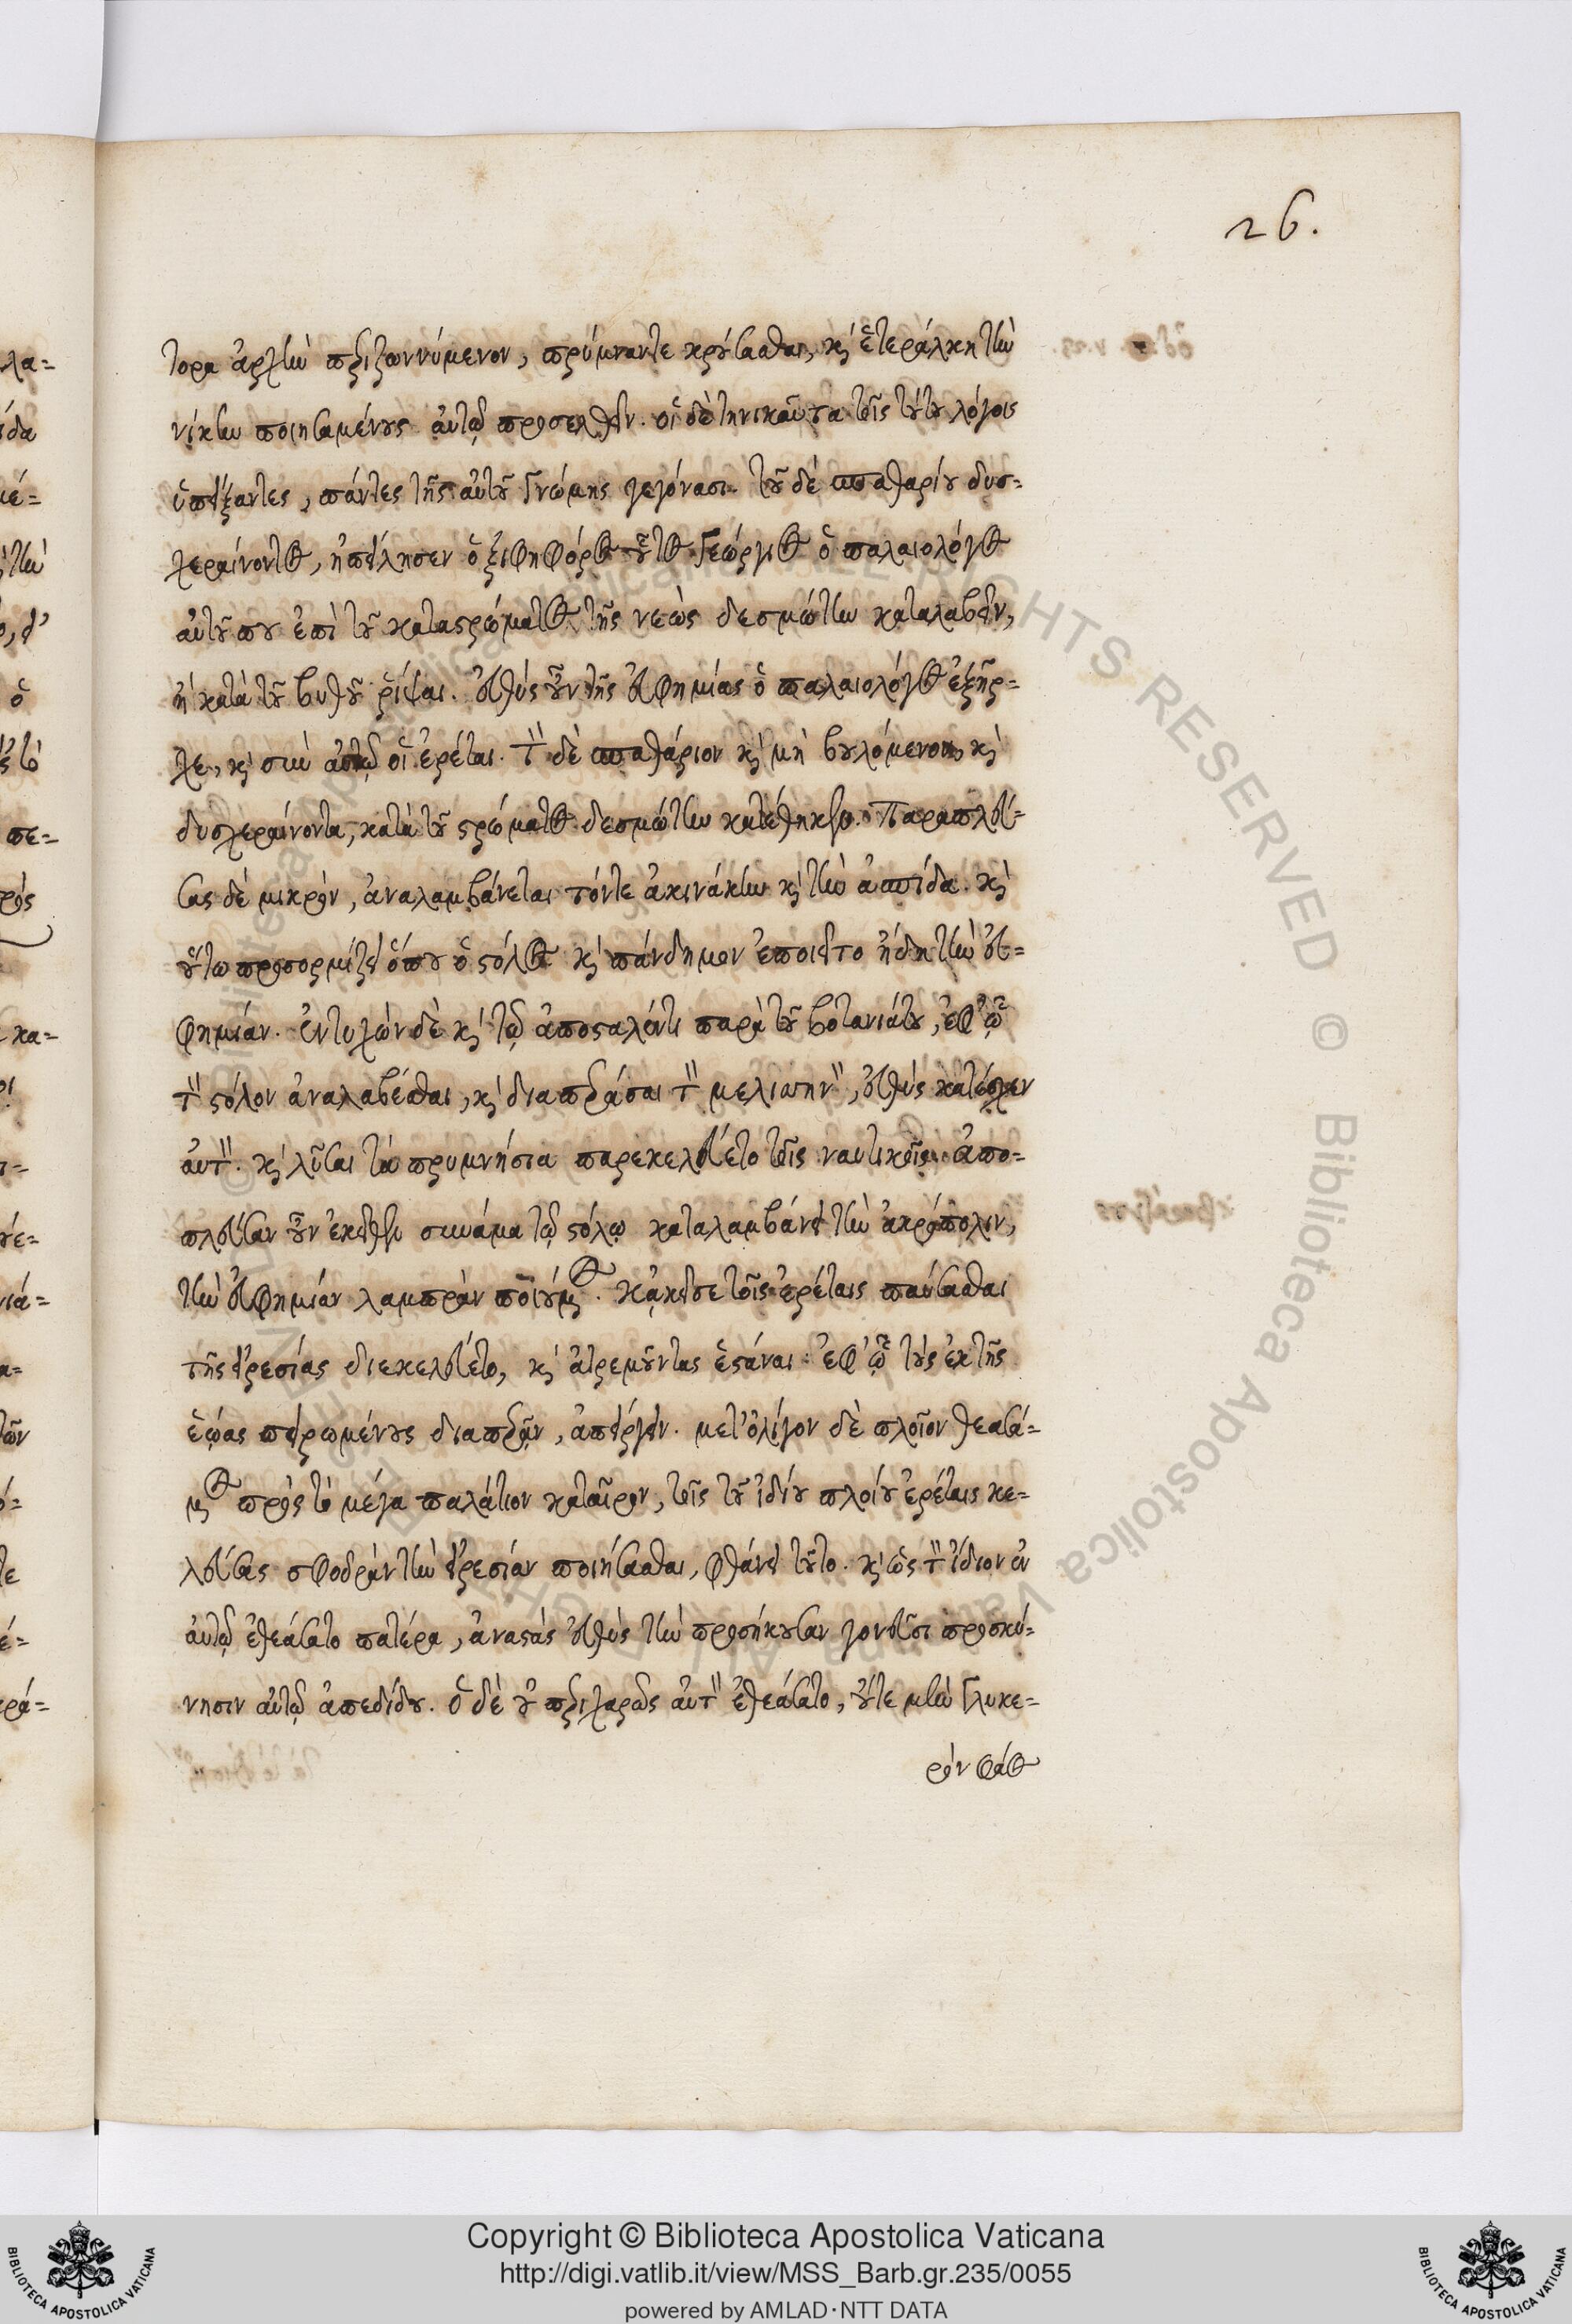 26.
τορα ἀρχὴν περιζωννύμενον, πρύμναντε κρούσασθαι, κὶ ἑτεράλκη τὴν
νίκην ποιησαμένους αὐτῷ προσελθεῖν. οἱ δὲ τηνικαῦτα τοῖς τούτου λόγοις
ὑπείξαντες, πάντες τῆς αὐτοῦ γνώμης γεγόνασι. τοῦ δὲ σπαθαρίου δυσ-
χεραίνοντος, ἠπείλησεν ὁ ξιφηφόρος οὗτος Γεώργιος ὁ παλαιολόγος
αὐτοῦ που ἐπὶ τοῦ καταστρώματος τῆς νεὼς δεσμώτην καταλαβεῖν,
ἢ κατὰ τοῦ βυθοῦ ῥίψαι. εὐθὺς οὖν τῆς εὐφημίας ὁ παλαιολόγος ἐξῆρ-
χε, κὶ σὺν αὐτῷ οἱ ἐρέται. τὸν δὲ σπαθάριον κὶ μὴ βουλόμενον, κὶ
δυσχεραίνοντα, κατὰ τοῦ στρώματος δεσμώτην κατέθηκεν. Παραπλεύ-
σας δὲ μικρὸν, ἀναλαμβάνεται τόντε ἀκινάκην κὶ τὴν ἀσπίδα. κὶ
οὕτω προσορμίζει ὅπου ὁ στόλος κὶ πάνδημον ἐποιεῖτο ἤδη τὴν εὐ-
φημίαν. Ἐντυχὼν δὲ κὶ τῷ ἀποσταλέντι παρὰ τοῦ βοτανιάτου, ἐφ' ᾧ
τὸν στόλον ἀναλαβέσθαι, κὶ διαπεράσαι τὸν μελισηνὸν, εὐθὺς κατέσχεν
αὐτὸν. κὶ λῦσαι τὰ πρυμνήσια παρεκελεύετο τοῖς ναυτικοῖς. ἀπο-
πλεύσαν οὖν ἐκεῖθεν συνάμα τῷ στόλῳ καταλαμβάνει τὴν ἀκρόπολιν,
τὴν εὐφημίαν λαμπρὰν ποιούμενος. κἀκεῖσε τοῖς ἐρέταις παύσασθαι
τῆς εἰρεσίας διεκελεύετο, κὶ ἀτρεμοῦντας ἑστάναι. ἐφ' ᾧ τοὺς ἐκ τῆς
ἑῴας πειρωμένους διαπερᾷν, ἀπείργειν. μετ' ὀλίγον δὲ πλοῖον θεασά-
μενος πρὸς τὸ μέγα παλάτιον καταῖρον, τοῖς τοῦ ἰδίου πλοίου ἐρέταις κε-
λεύσας σφοδρὰν τὴν εἰρεσίαν ποιήσασθαι, φθάνει τοῦτο. κὶ ὡς τὸν ἴδιον ἐν
αὐτῷ ἐθεάσατο πατέρα, ἀναστὰς εὐθὺς τὴν προσήκουσαν γονεῦσι προσκύ-
νησιν αὐτῷ ἀπεδίδου. ὁ δὲ οὐ περιχαρῶς αὐτὸν ἐθεάσατο, οὔτε μὴν γλυκε-
ρὸν φάος
Copyright © Biblioteca Apostolica Vaticana
http://digi.vatlib.it/view/MSS_Barb.gr.235/0055
powered by AMLAD·NTT DATA